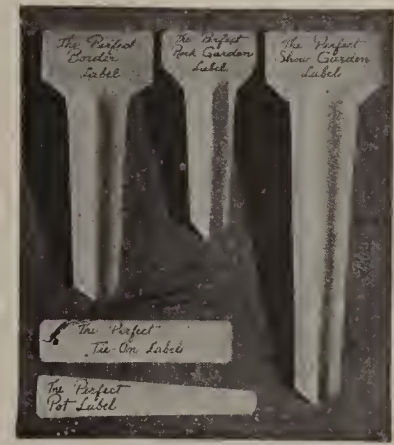 The Perfect
Border
Label
The Perfect
Rock Garden
Label
The Perfect
Show Garden
Labels
The Perfect
Tie-On Labels
The Perfect
Pot Label